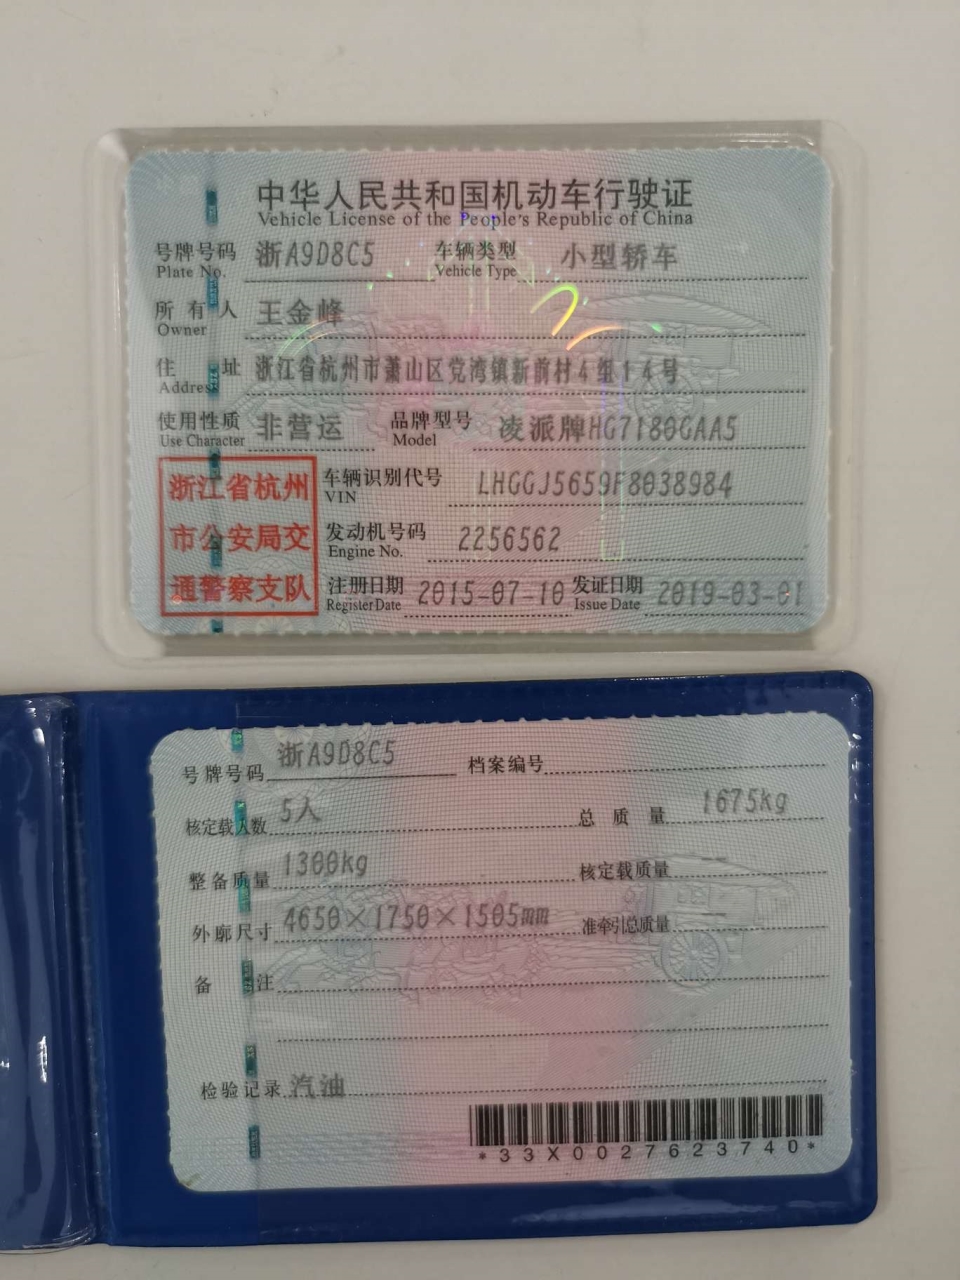 中华人民共和国机动车行驶证
Vehicle License of the People's Republic of China
号牌号码 浙A9D8C5 车辆类型 小型轿车
Plate No. Vehicle Type
所有人 王金峰
Owner
住址 浙江省杭州市萧山区党湾镇新前村4组14号
Address
使用性质 非营运 品牌型号 凌派牌HG7180GAA5
Use Character Model
浙江省杭州
市公安局交
通警察支队
车辆识别代号 LHGGJ5659F8038984
VIN
发动机号码 2256562
Engine No.
注册日期 2015-07-10 发证日期 2019-03-01
Register Date Issue Date
号牌号码 浙A9D8C5 档案编号
核定载人数 5人 总质量 1675kg
整备质量 1300kg 核定载质量 --
外廓尺寸 4650×1750×1505mm 准牵引总质量 --
备注
检验记录 汽油
*33X0027623740*